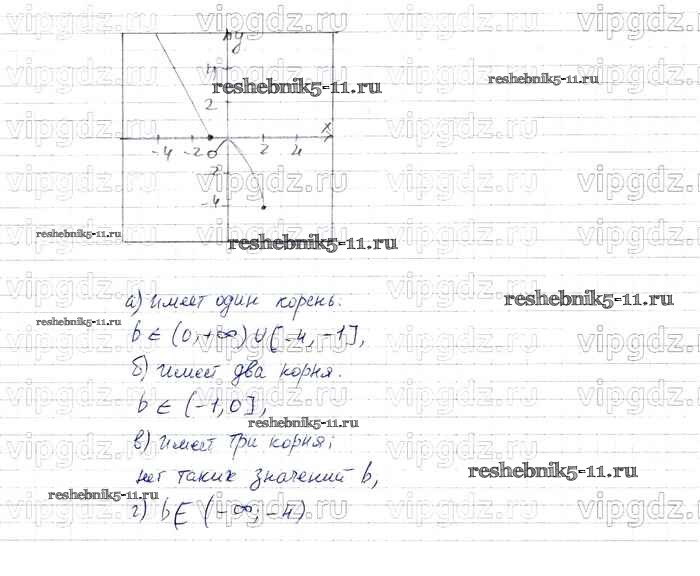 y
4
2
x
-4 -2 0 2 4
2
-4
reshebnik5-11.ru
reshebnik5-11.ru
reshebnik5-11.ru
reshebnik5-11.ru
а) имеет один корень.
reshebnik5-11.ru
reshebnik5-11.ru
b ∈ (0,+∞) ∪ [-4, -1],
б) имеет два корня.
b ∈ (-1,0],
reshebnik5-11.ru
в) имеет три корня;
нет таких значений b,
reshebnik5-11.ru
reshebnik5-11.ru
г) b ∈ (-∞; -4)
vipgdz.ru vipgdz.ru vipgdz.ru vipgdz.ru